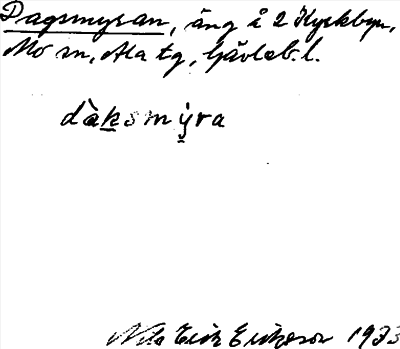 Dagsmyran, äng å 2 Kyrkbyn,
Mo sn, Ala tg, Gävleb. l.
dàksmýra
Nils Erik Eriksson 1933